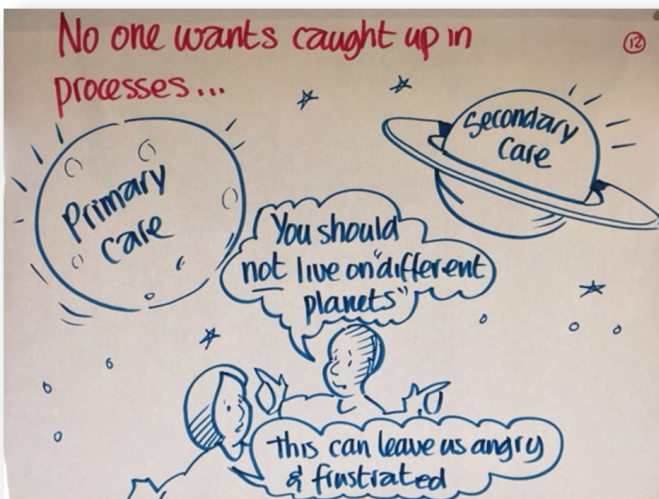 No one wants caught up in
processes...
12
Primary
care
Secondary
Care
You should
not live on "different
planets"
This can leave us angry
& frustrated